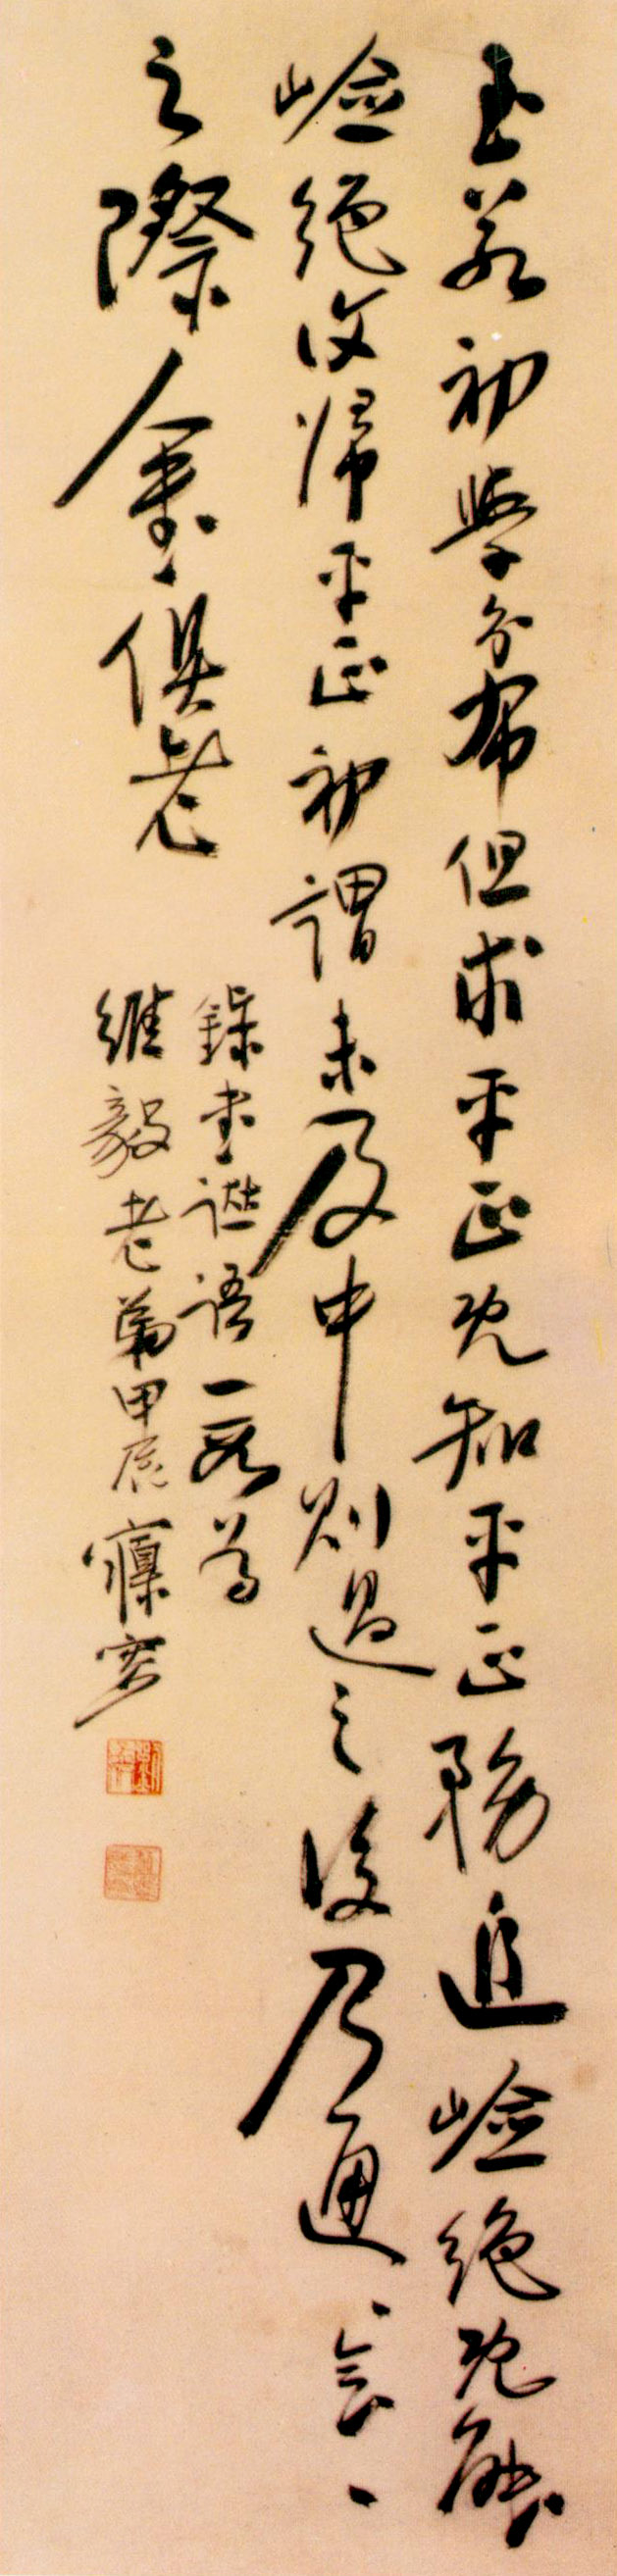 至若初學分布但求平正既知平正務追嶮絕既能
嶮絕復歸平正初謂未及中則過之後乃通〻會〻
之際人書俱老
錄書譜語一段為
維毅老弟甲辰